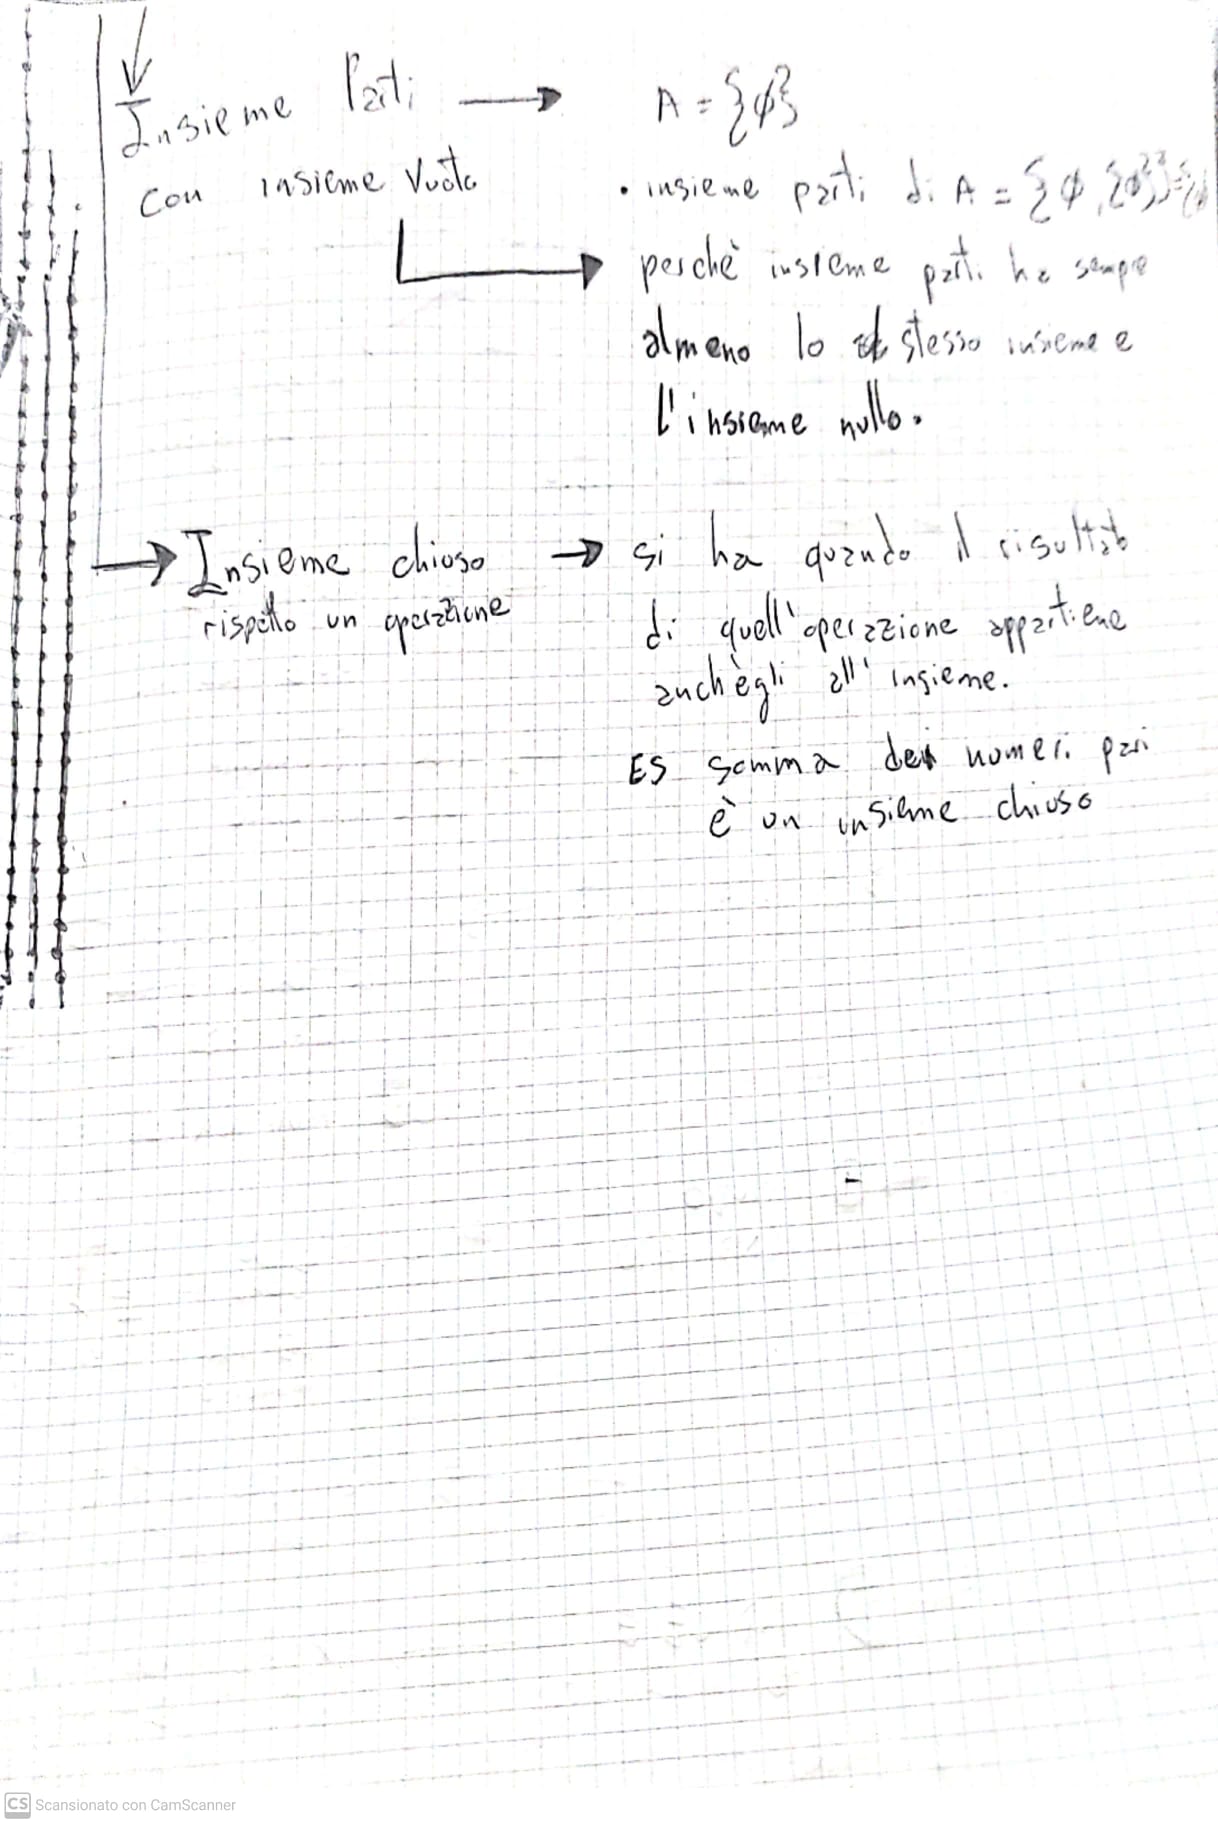 Insieme Parti → A = {ϕ}
con insieme vuoto
• insieme parti di A = {ϕ, {ϕ}} =
perchè insieme parti ha sempre
almeno lo stesso insieme e
l'insieme nullo.
Insieme chiuso → si ha quando il risultato
rispetto un operazione
di quell'operazione appartiene
anch'egli all'insieme.
ES somma dei numeri pari
è un insieme chiuso
CS Scansionato con CamScanner